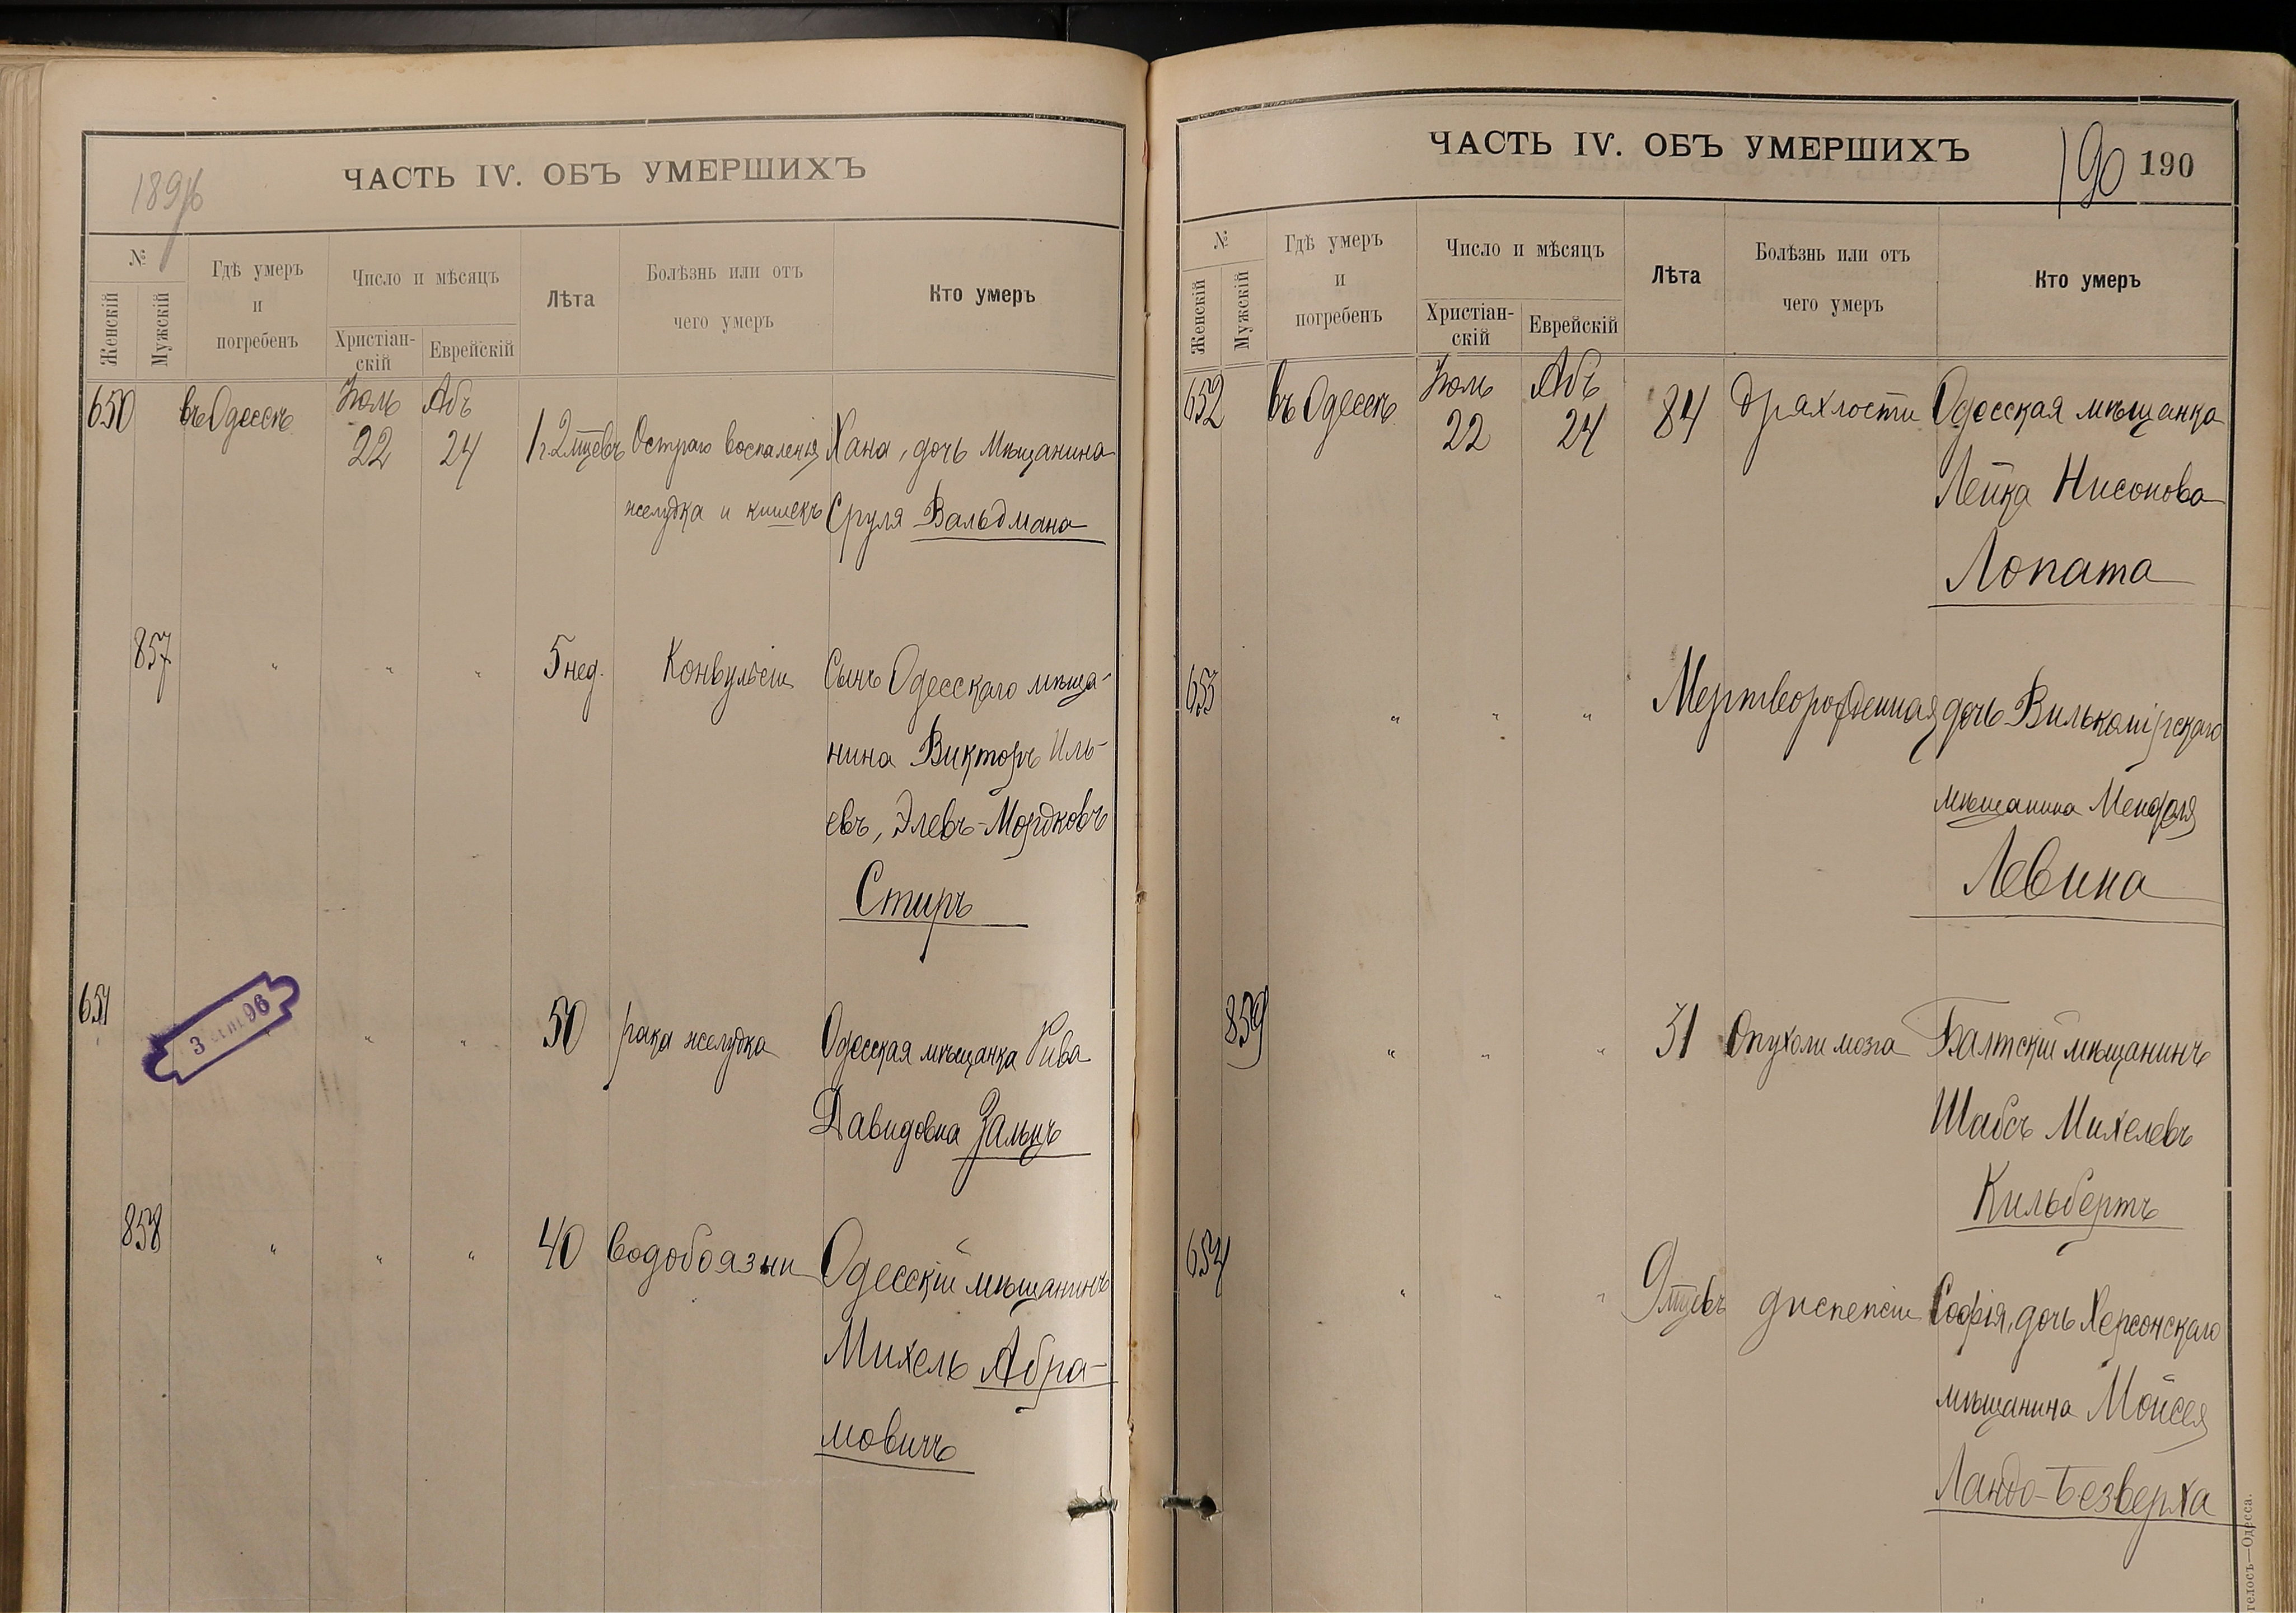 1896
ЧАСТЬ IV. ОБЪ УМЕРШИХЪ
№
Женскій
Мужскій
Гдѣ умеръ
и
погребенъ
Число и мѣсяцъ
Христіан-
скій
Еврейскій
Лѣта
Болѣзнь или отъ
чего умеръ
Кто умеръ
650 въ Одессѣ Іюль 22 Абъ 24 1 г. 2 мцевъ Остраго воспаленія Хана, дочь Мѣщанина
желудка и кишекъ Сруля Вальдмана
857 " " " 5 нед. Конвульсіи Сынъ Одесскаго мѣща-
нина Викторъ Иль-
евъ, Элевъ-Мордковъ
Стиръ
651 " " 50 рака желудка Одесская мѣщанка Рива
Давидовна Зальцъ
3 96
858 " " " 40 водобоязни Одесскій мѣщанинъ
Михель Абра-
мовичъ
ЧАСТЬ IV. ОБЪ УМЕРШИХЪ
190 190
№
Женскій
Мужскій
Гдѣ умеръ
и
погребенъ
Число и мѣсяцъ
Христіан-
скій
Еврейскій
Лѣта
Болѣзнь или отъ
чего умеръ
Кто умеръ
652 въ Одессѣ Іюль 22 Абъ 24 84 дряхлости Одесская мѣщанка
Лейка Нисонова
Лопата
653 " " " Мертворожденная дочь Вилькомірскаго
мѣщанина Менделя
Левина
859 " " " 31 Опухоли мозга Балтскій мѣщанинъ
Шабсъ Михелевъ
Кильбертъ
654 " " " 9 мцевъ диспепсіи Софія, дочь Херсонскаго
мѣщанина Мойсея
Ландо-Безверха
гелосъ—Одесса.